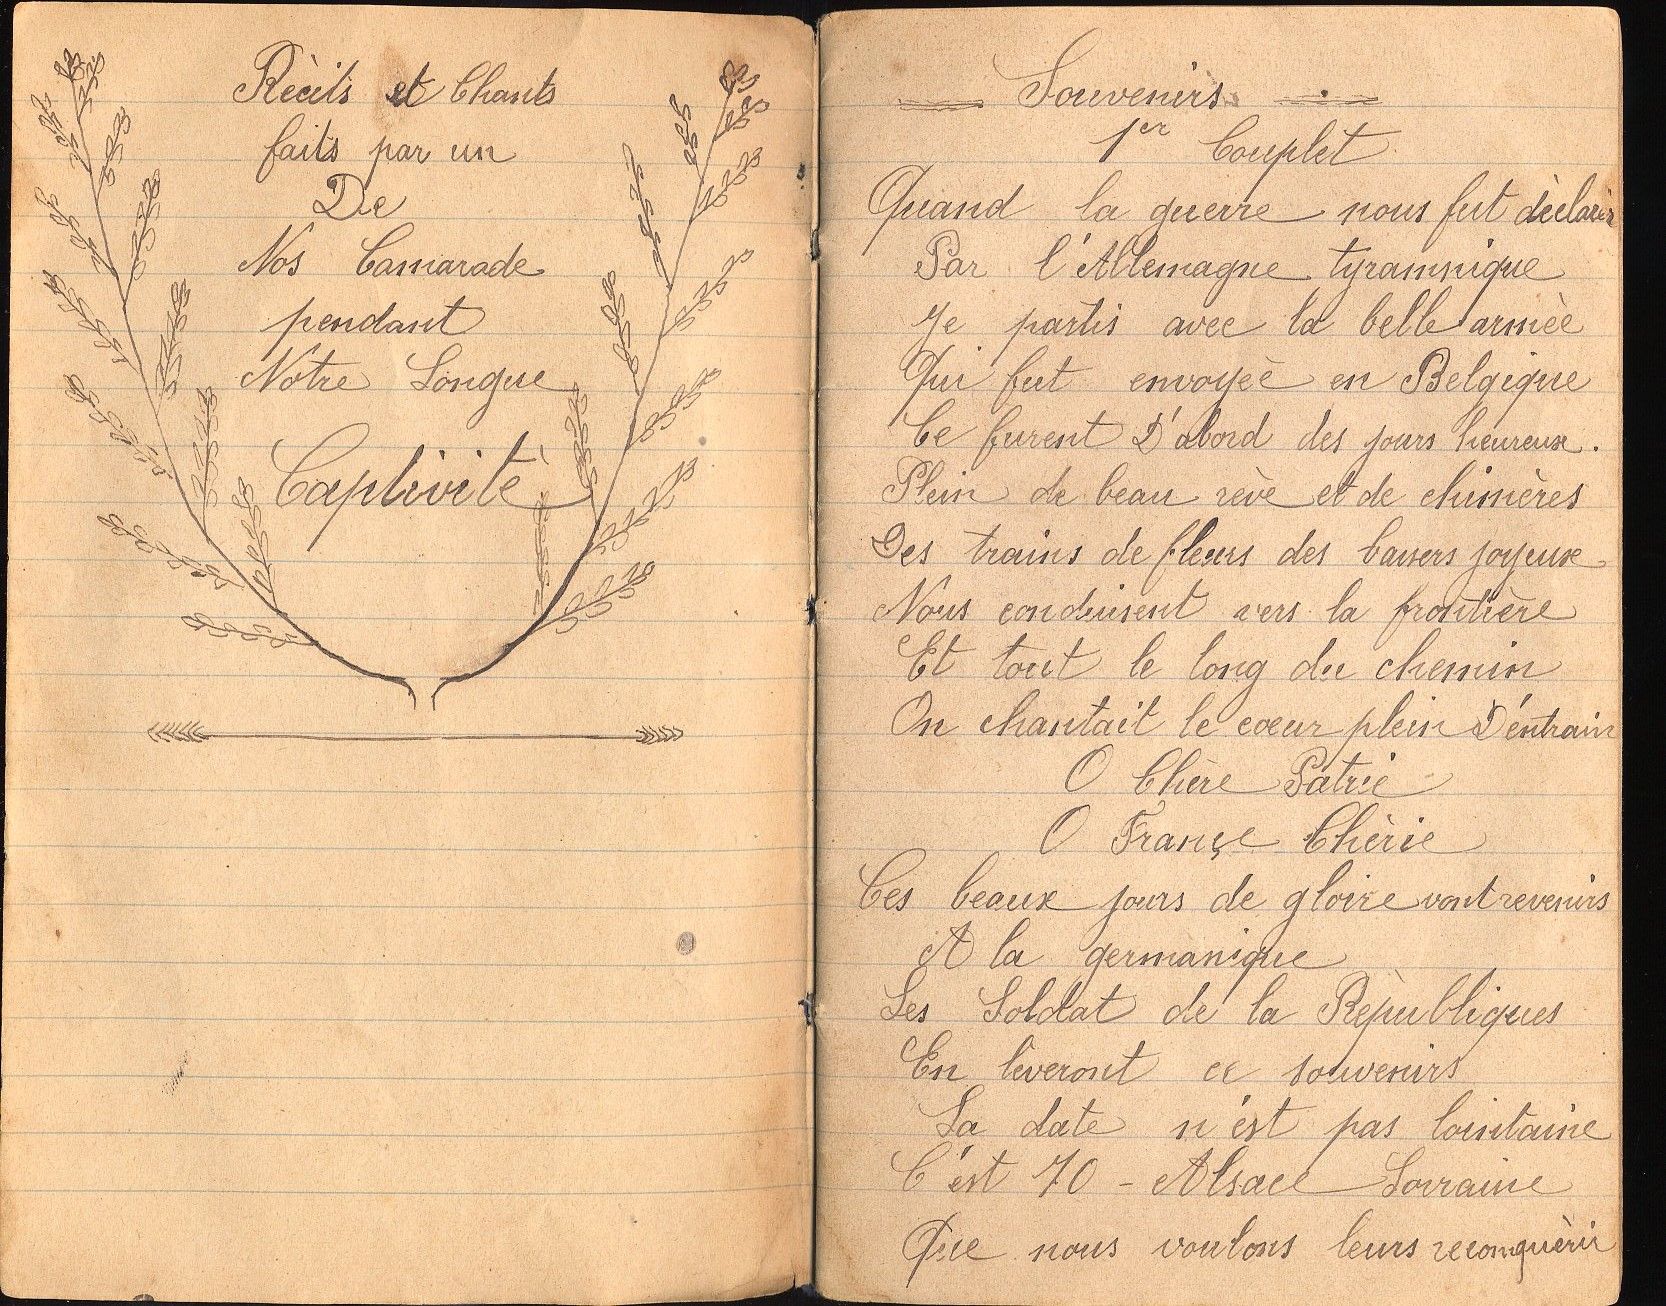 Rècits et Chants
faits par un
De
Nos Camarade
pendant
Notre Longue
Captivité
Souvenirs
1er Couplet
Quand la guerre nous fut dèclarèr
Par l'Allemagne tyrannique
Je partis avec la belle armèè
Qui fut envoyèè en Belgique
Ce furent D'abord des jours heureux.
Plein de beau rève et de chimères
Des trains de fleurs des baisers joyeux
Nous conduisent vers la frontière
Et tout le long du chemin
On chantait le coeur plein D'éntrain
O Chère Patrie
O Françe Chèrie
Ces beaux jours de gloire vont revenirs
A la germanique
Les Soldat de la Rèpubliques
En lèveront ce souvenirs
La date n'est pas lointaine
C'est 70 - Alsace Lorraine
Que nous voulons leurs reconquèrir